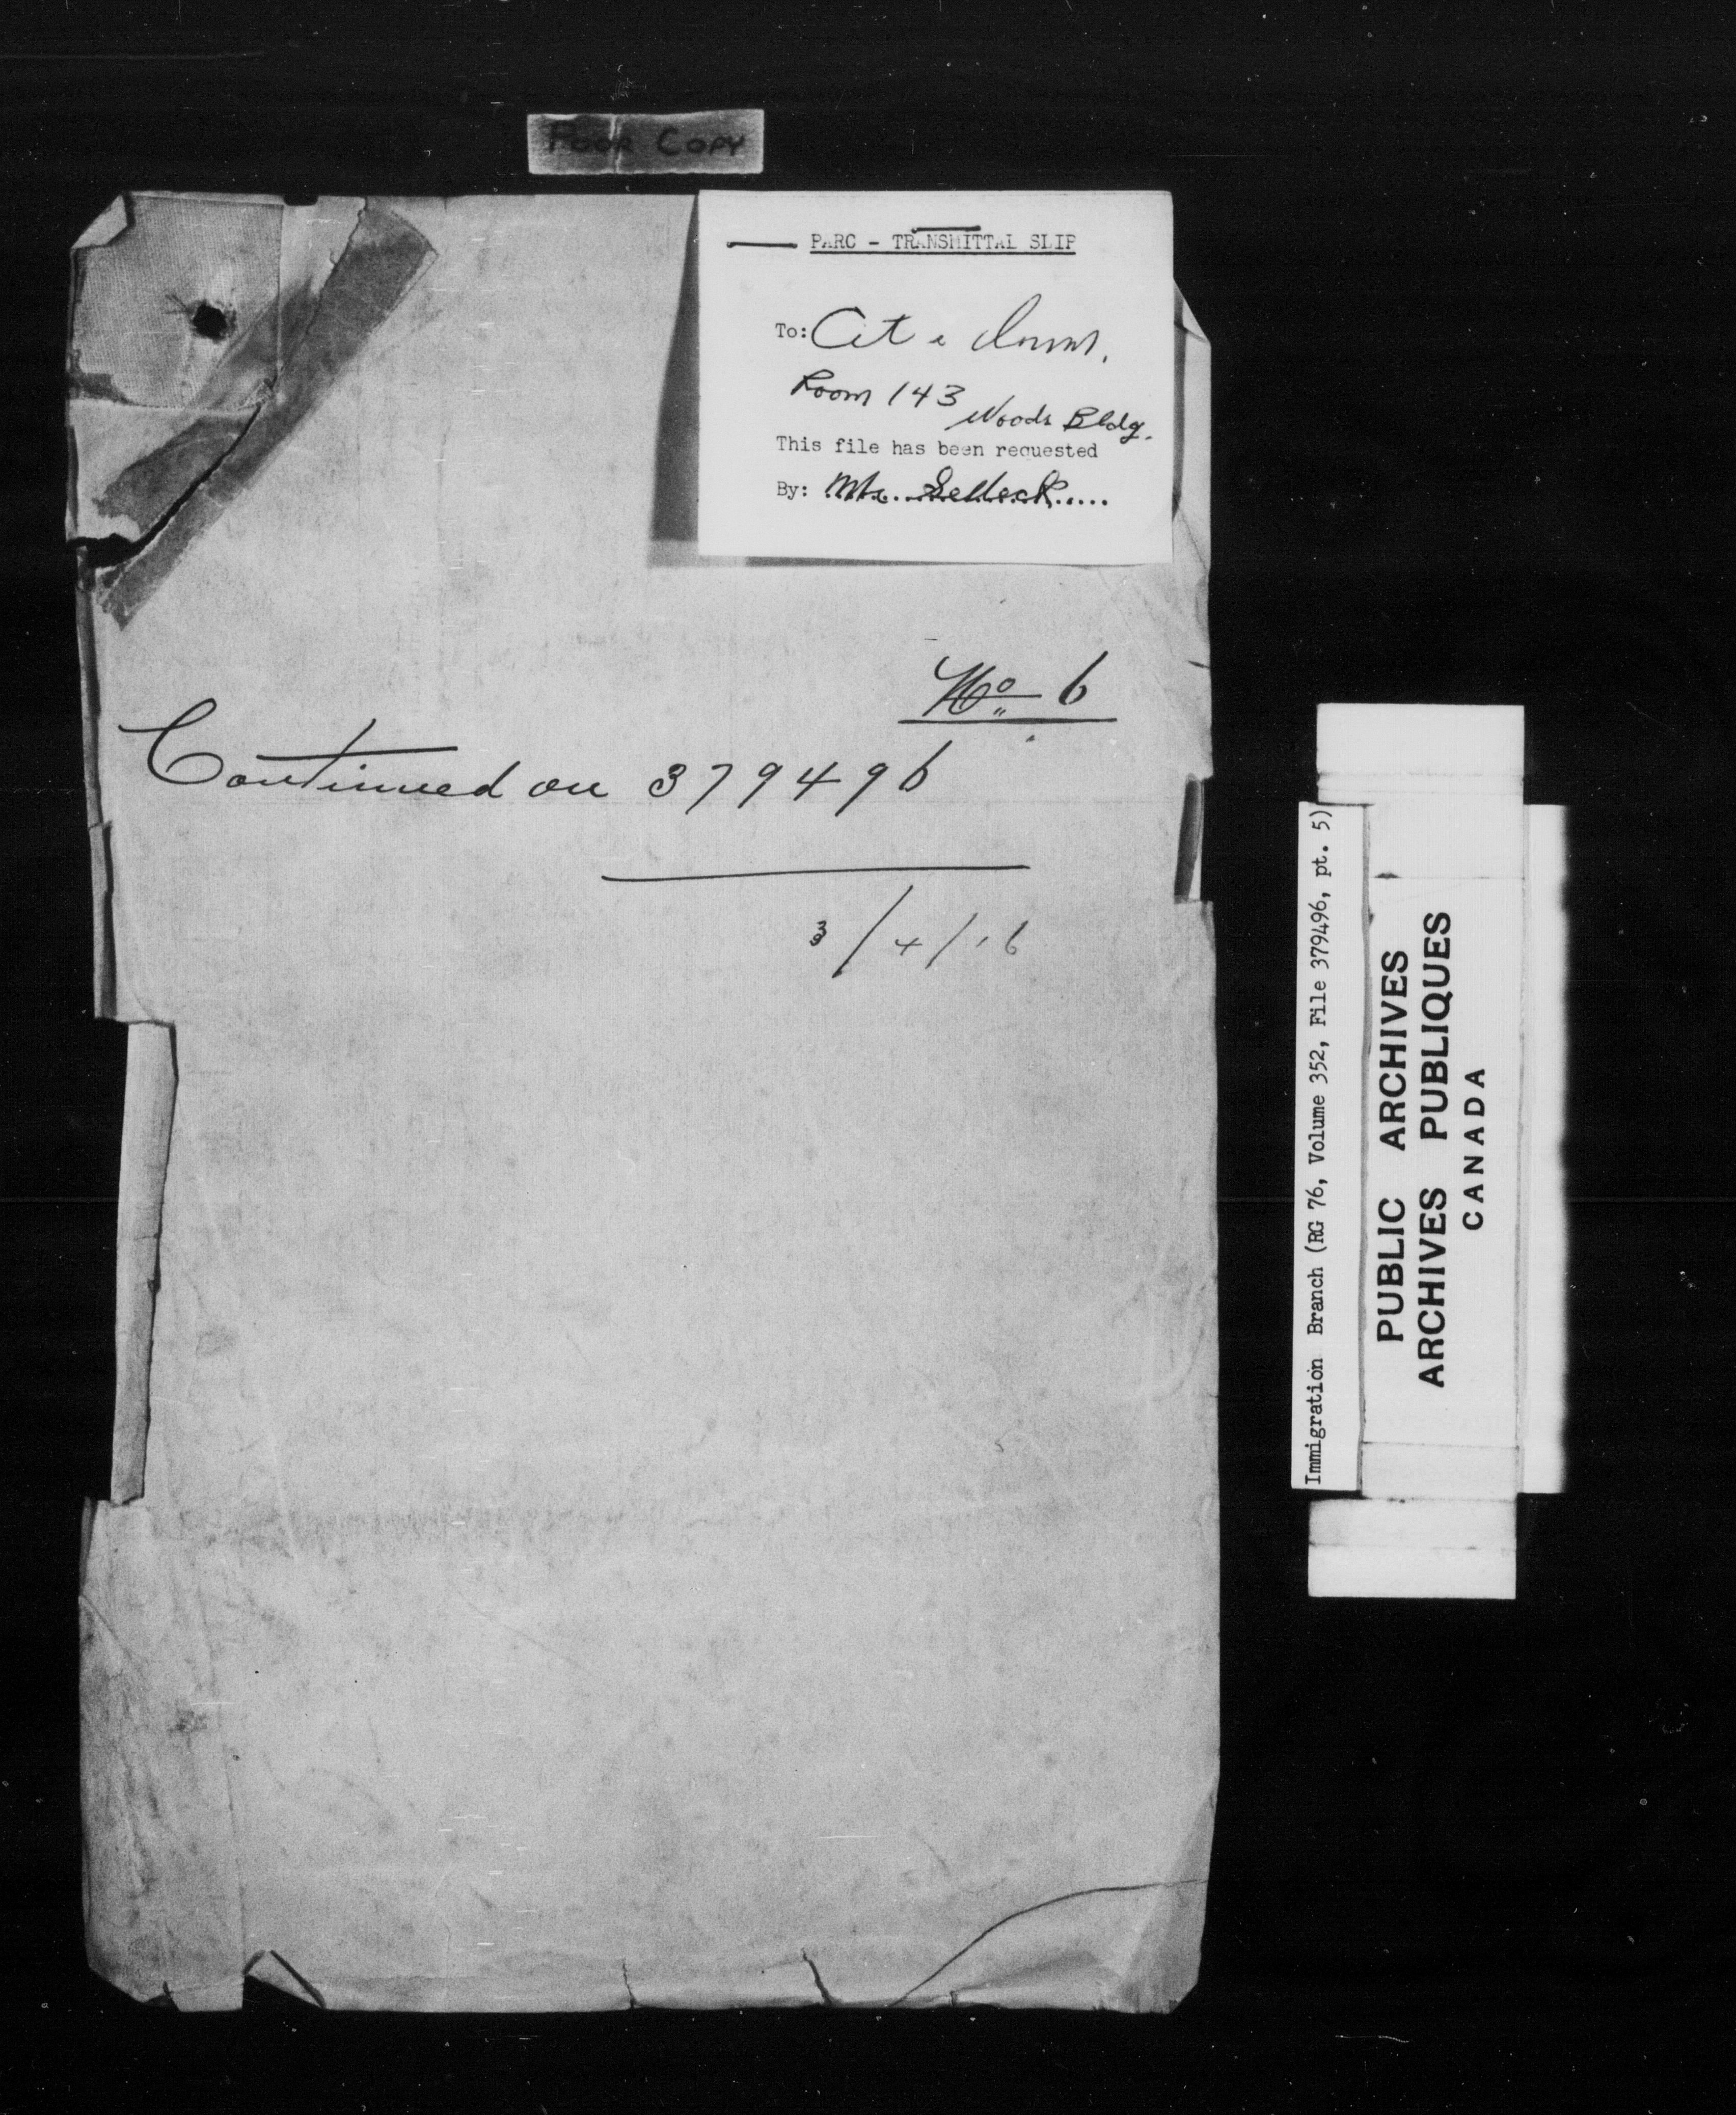 POOR COPY
PARC - TRANSMITTAL SLIP
To: Cit & Imm.
Room 143
Woods Bldg.
This file has been requested
By: Mr. Selleck
No 6
Continued on 379496
3/4/16
Immigration Branch (RG 76, Volume 352, File 379496, pt. 5)
PUBLIC ARCHIVES
ARCHIVES PUBLIQUES
CANADA